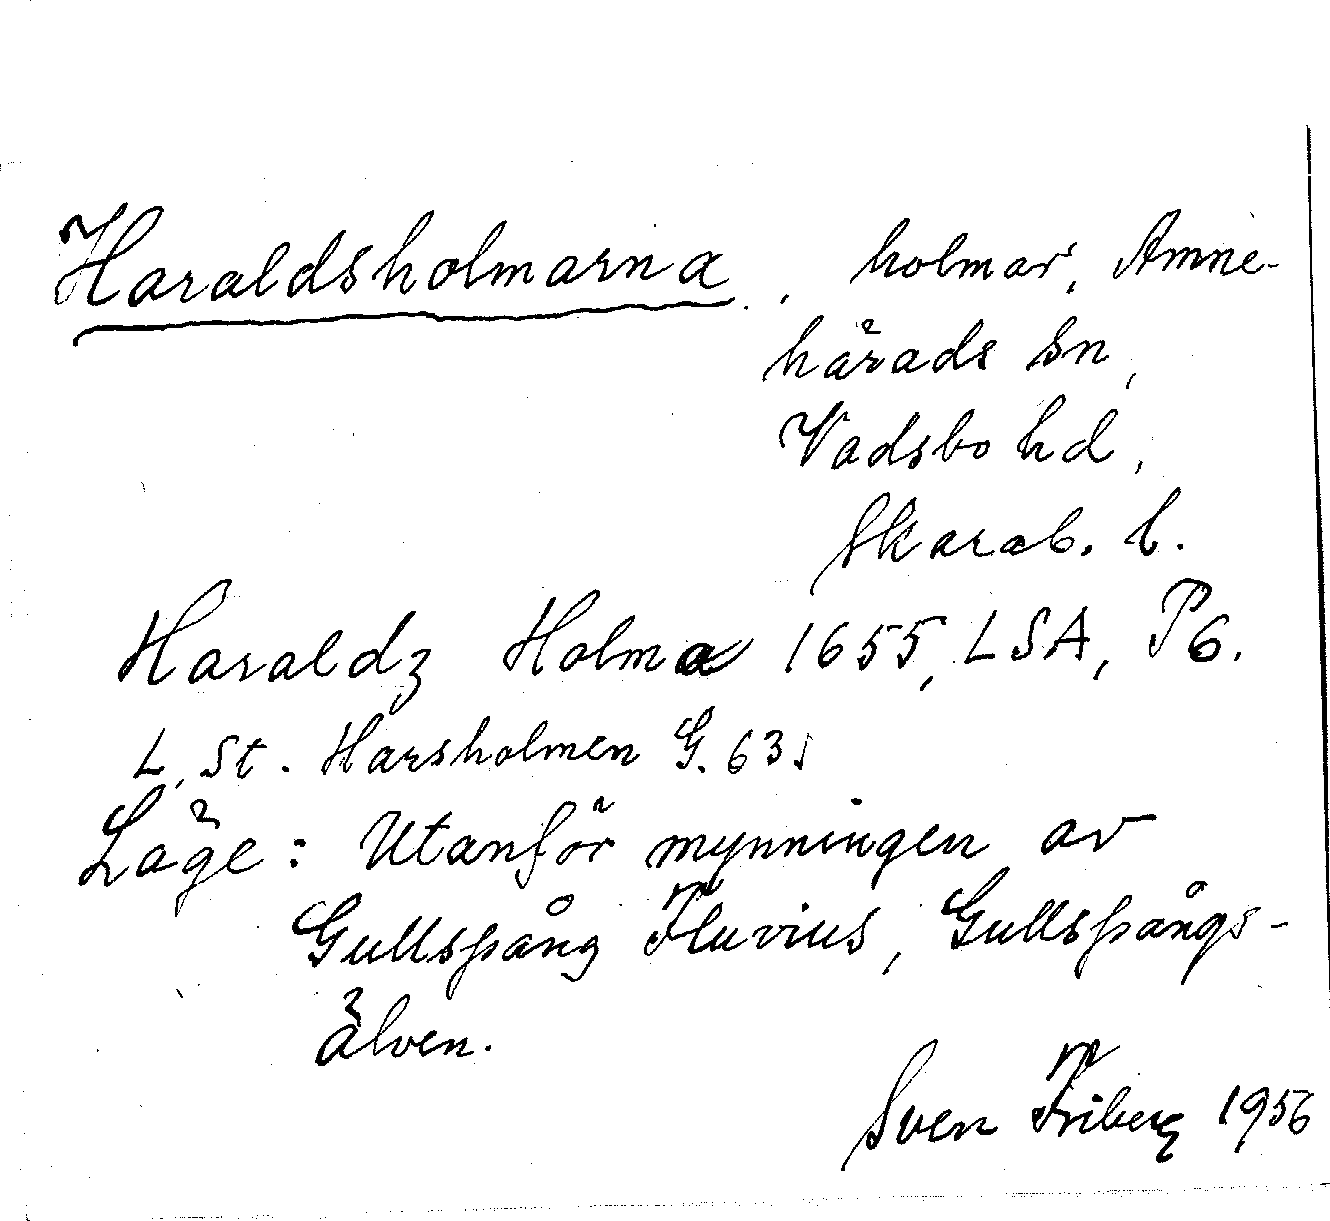 Haraldsholmarna, holmar, Amne-
härads sn,
Vadsbo hd,
Skarab. l.
Haraldz Holma 1655, LSA, P6.
L. St. Harsholmen G. 63.
Läge: Utanför mynningen av
Gullspång Fluvius, Gullspångs-
älven.
Sven Friberg 1956